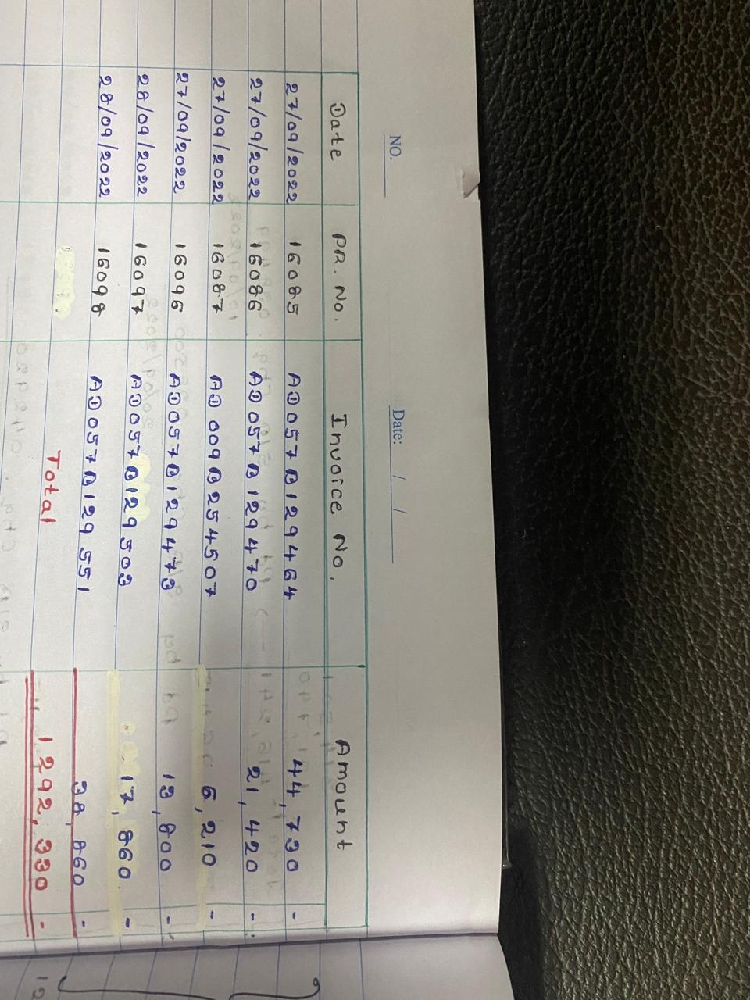 NO. Date: / /
Date PR. No. Invoice No. Amount
27/09/2022 16085 AD057B129464 44,730 -
27/09/2022 16086 AD057B129470 21,420 -
27/09/2022 16087 AD009B254507 6,210 -
27/09/2022 16096 AD057B129473 13,800 -
28/09/2022 16097 AD057B129503 17,860 -
28/09/2022 16098 AD057B129551 38,860 -
Total 1292,330 -